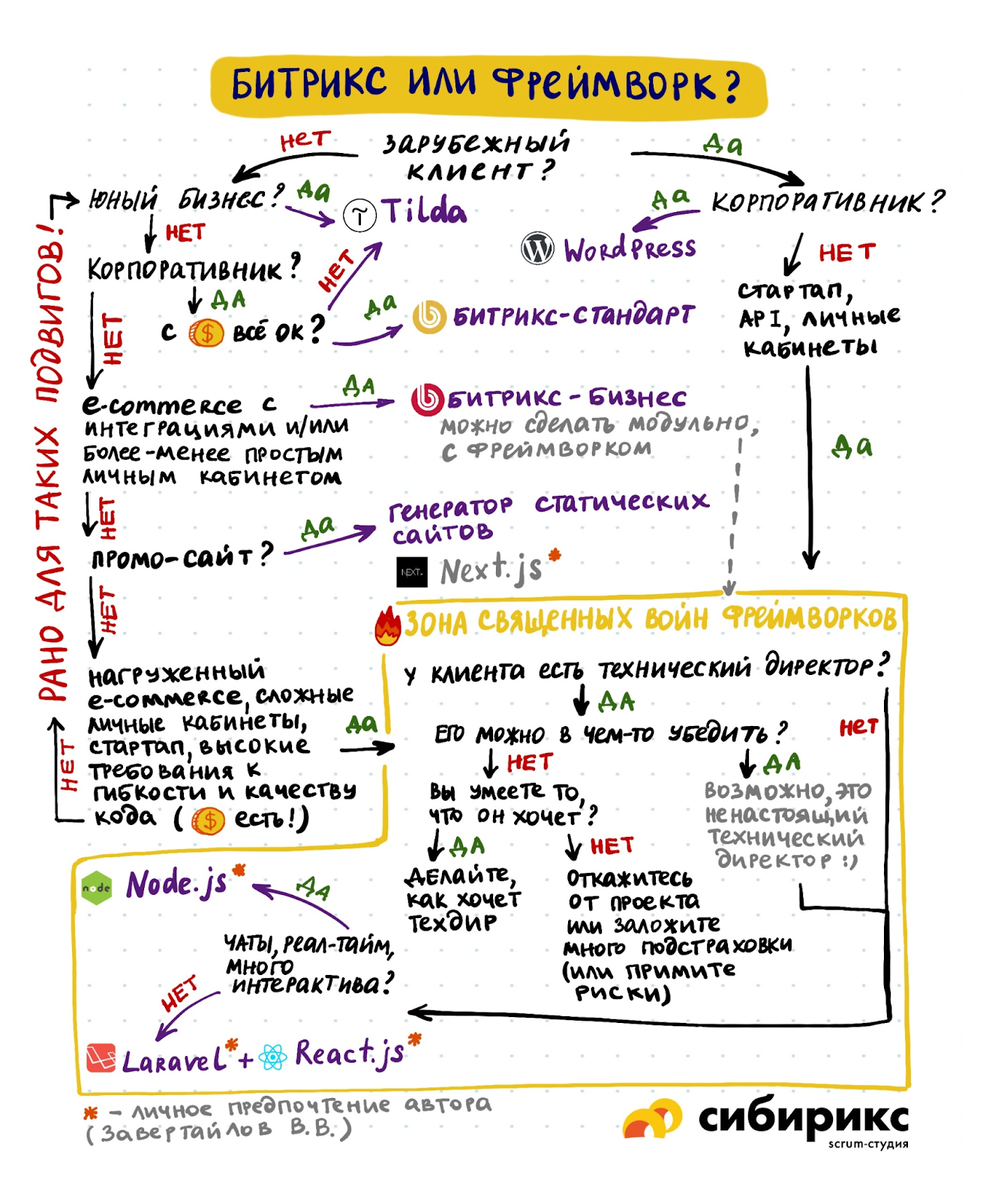 БИТРИКС ИЛИ ФРЕЙМВОРК?
ЗАРУБЕЖНЫЙ
КЛИЕНТ?
НЕТ
ДА
ЮНЫЙ БИЗНЕС?
ДА
Tilda
НЕТ
КОРПОРАТИВНИК?
ДА
WORDPRESS
НЕТ
СТАРТАП,
API, ЛИЧНЫЕ
КАБИНЕТЫ
ДА
КОРПОРАТИВНИК?
ДА
С $ ВСЁ ОК?
НЕТ
ДА
БИТРИКС-СТАНДАРТ
НЕТ
e-commerce с
ИНТЕГРАЦИЯМИ И/ИЛИ
БОЛЕЕ-МЕНЕЕ ПРОСТЫМ
ЛИЧНЫМ КАБИНЕТОМ
ДА
БИТРИКС-БИЗНЕС
МОЖНО СДЕЛАТЬ МОДУЛЬНО,
С ФРЕЙМВОРКОМ
НЕТ
ПРОМО-САЙТ?
ДА
ГЕНЕРАТОР СТАТИЧЕСКИХ
САЙТОВ
NEXT.
Next.js*
НЕТ
НАГРУЖЕННЫЙ
e-commerce, СЛОЖНЫЕ
ЛИЧНЫЕ КАБИНЕТЫ,
СТАРТАП, ВЫСОКИЕ
ТРЕБОВАНИЯ К
ГИБКОСТИ И КАЧЕСТВУ
КОДА ($ ЕСТЬ!)
ДА
НЕТ
РАНО ДЛЯ ТАКИХ ПОДВИГОВ!
ЗОНА СВЯЩЕННЫХ ВОЙН ФРЕЙМВОРКОВ
У КЛИЕНТА ЕСТЬ ТЕХНИЧЕСКИЙ ДИРЕКТОР?
ДА
НЕТ
ЕГО МОЖНО В ЧЕМ-ТО УБЕДИТЬ?
НЕТ
ДА
ВЫ УМЕЕТЕ ТО,
ЧТО ОН ХОЧЕТ?
ВОЗМОЖНО, ЭТО
НЕНАСТОЯЩИЙ
ТЕХНИЧЕСКИЙ
ДИРЕКТОР :)
ДА
НЕТ
ДЕЛАЙТЕ,
КАК ХОЧЕТ
ТЕХДИР
ОТКАЖИТЕСЬ
ОТ ПРОЕКТА
ИЛИ ЗАЛОЖИТЕ
МНОГО ПОДСТРАХОВКИ
(ИЛИ ПРИМИТЕ
РИСКИ)
node
Node.js*
ДА
ЧАТЫ, РЕАЛ-ТАЙМ,
МНОГО
ИНТЕРАКТИВА?
НЕТ
Laravel* + React.js*
* - ЛИЧНОЕ ПРЕДПОЧТЕНИЕ АВТОРА
(ЗАВЕРТАЙЛОВ В.В.)
сибирикс
scrum-студия